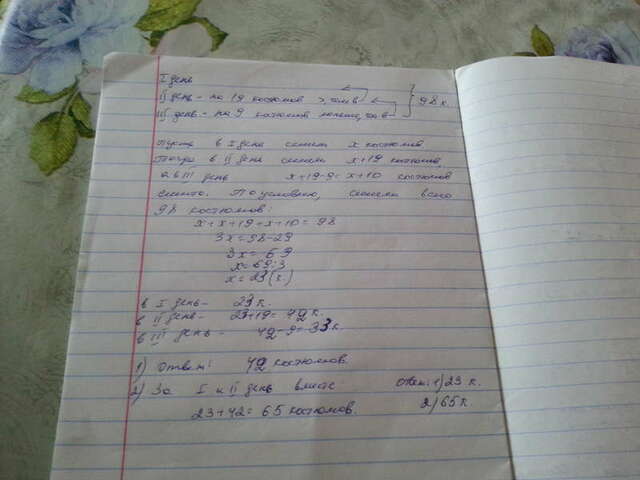 I день
II день - на 19 костюмов >, чем в
III день - на 9 костюмов меньше, чем в
98 к.
Пусть в I день сшили x костюмов
Тогда в II день сшили x+19 костюмов,
а в III день x+19-9=x+10 костюмов
сшито. По условию, сшили всего
98 костюмов:
x+x+19+x+10=98
3x=98-29
3x=69
x=69:3
x=23(к.)
в I день - 23 к.
в II день - 23+19=42 к.
в III день - 42-9=33 к.
1) Ответ: 42 костюмов.
2) За I и II день вместе
23+42=65 костюмов.
Ответ: 1) 23 к.
2) 65 к.